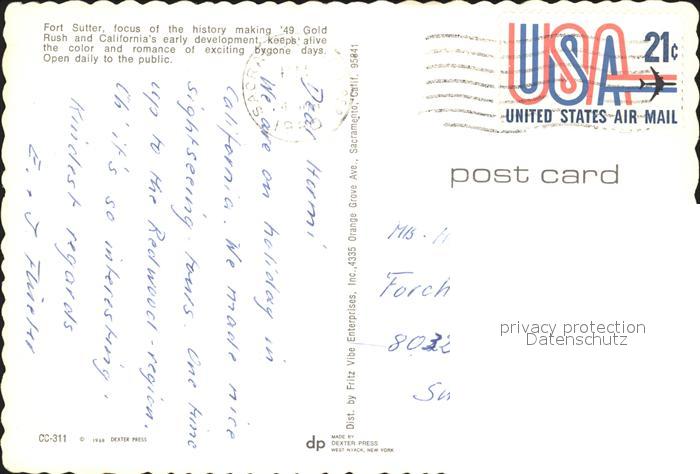 Fort Sutter, focus of the history making '49 Gold
Rush and California's early development, keeps alive
the color and romance of exciting bygone days.
Open daily to the public.
Dear Hermi
We are on holiday in
California. We made nice
sightseeing-tours. One time
up to the Redwood-region.
Oh it's so interesting.
Kindest regards
E. + J.
CC-311 © 1968 DEXTER PRESS
Dist. by Fritz Vibe Enterprises, Inc., 4335 Orange Grove Ave., Sacramento, Calif. 95841
dp MADE BY
DEXTER PRESS
WEST NYACK, NEW YORK
USA 21¢
UNITED STATES AIR MAIL
post card
Forch
8032
privacy protection
Datenschutz